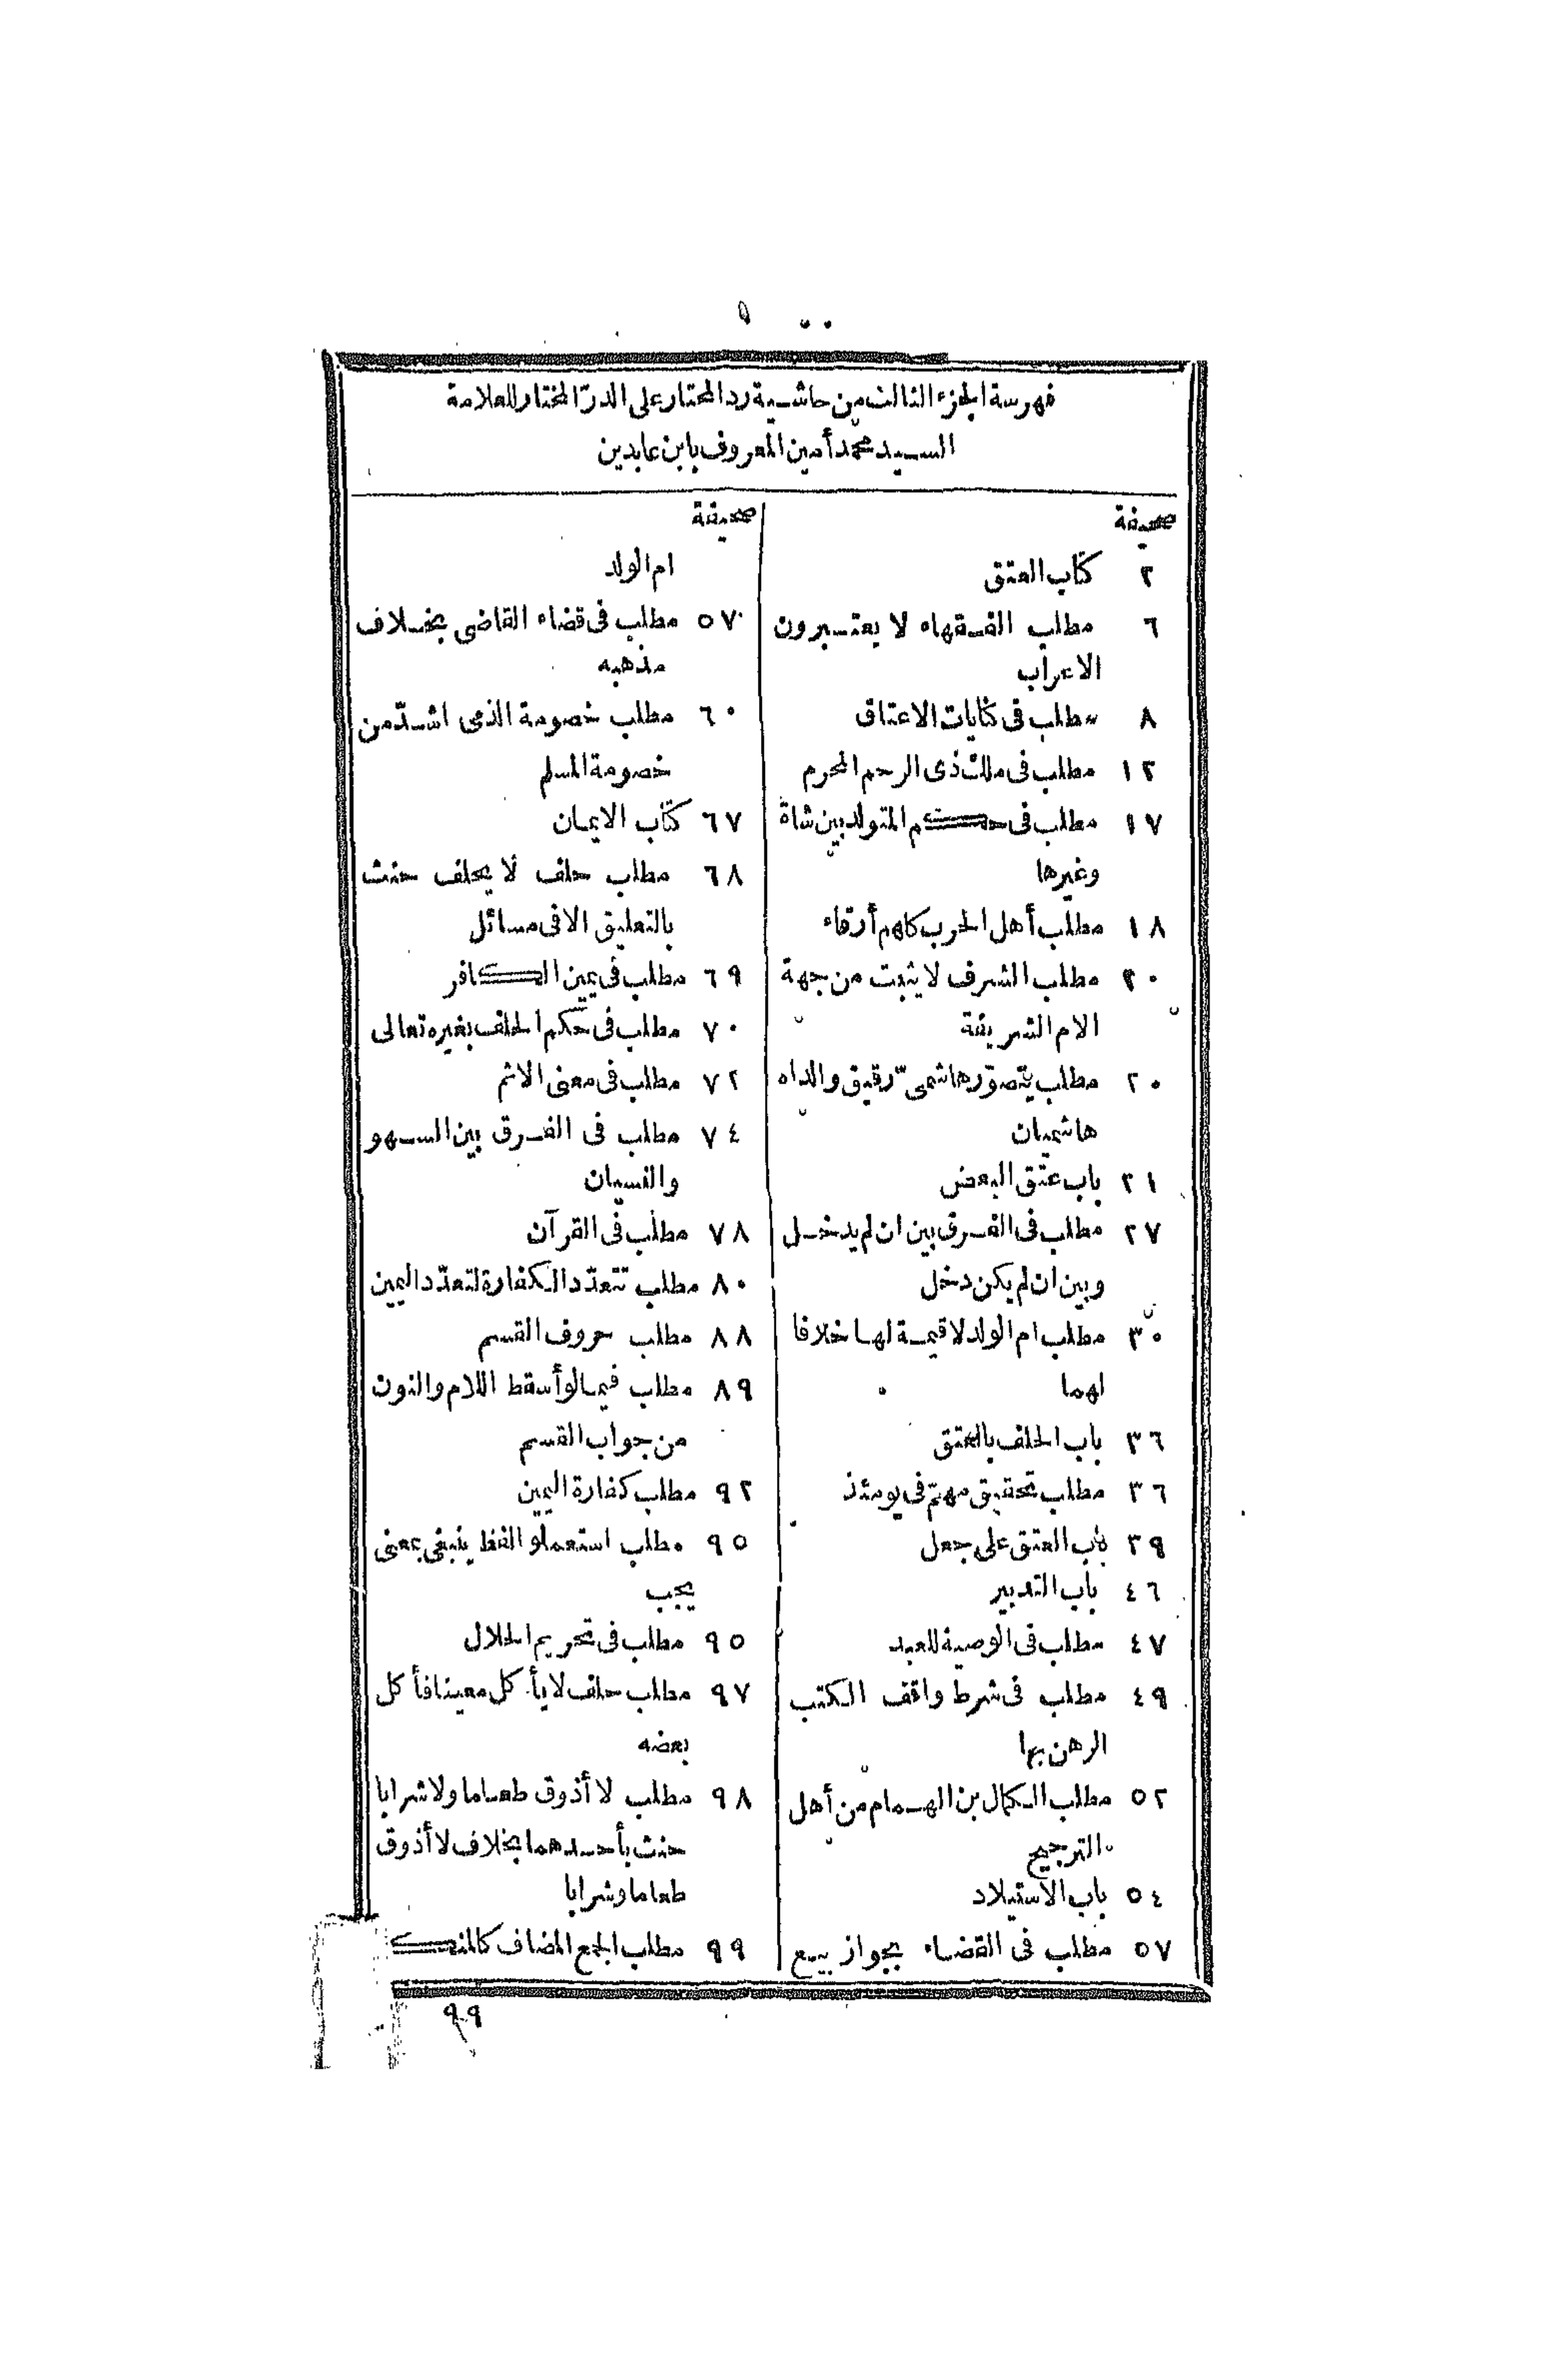 فهرسة الجزء الثالث من حاشية رد المحتار على الدرّ المختار للعلامة
السيد محمد أمين المعروف بابن عابدين
صحيفة
٢ كتاب العتق
٦ مطلب الفقهاء لا يعتبرون
الاعراب
٨ مطلب فى كنايات الاعتاق
١٢ مطلب فى ملك ذى الرحم المحرم
١٧ مطلب فى حكم المتولد بين شاة
وغيرها
١٨ مطلب أهل الحرب كلهم أرقاء
٢٠ مطلب الشرف لا يثبت من جهة
الام الشريفة
٢٠ مطلب يتصوّر هاشمىّ رقيق والداه
هاشميان
٢١ باب عتق البعض
٢٧ مطلب فى الفرق بين ان لم يدخل
وبين ان لم يكن دخل
٣٠ مطلب ام الولد لا قيمة لها خلافا
لهما
٣٦ باب الحلف بالعتق
٣٦ مطلب تحقيق مهمّ فى يومئذ
٣٩ باب العتق على جعل
٤٦ باب التدبير
٤٧ مطلب فى الوصية للعبد
٤٩ مطلب فى شرط واقف الكتب
الرهن بها
٥٢ مطلب الكمال بن الهمام من أهل
الترجيح
٥٤ باب الاستيلاد
٥٧ مطلب فى القضاء بجواز بيع
صحيفة
ام الولد
٥٧ مطلب فى قضاء القاضى بخلاف
مذهبه
٦٠ مطلب خصومة الذمى اشدّ من
خصومة المسلم
٦٧ كتاب الايمان
٦٨ مطلب حلف لا يحلف حنث
بالتعليق الا فى مسائل
٦٩ مطلب فى يمين الكافر
٧٠ مطلب فى حكم الحلف بغيره تعالى
٧٢ مطلب فى معنى الاثم
٧٤ مطلب فى الفرق بين السهو
والنسيان
٧٨ مطلب فى القرآن
٨٠ مطلب تتعدّد الكفارة لتعدّد اليمين
٨٨ مطلب حروف القسم
٨٩ مطلب فيما لو أسقط اللام والنون
من جواب القسم
٩٢ مطلب كفارة اليمين
٩٥ مطلب استعملو الفظ ينبغى بمعنى
يجب
٩٥ مطلب فى تحريم الحلال
٩٧ مطلب حلف لا يأكل معينا فأكل
بعضه
٩٨ مطلب لا أذوق طعاما ولا شرابا
حنث بأحدهما بخلاف لا أذوق
طعاما وشرابا
٩٩ مطلب الجمع المضاف
٩٩